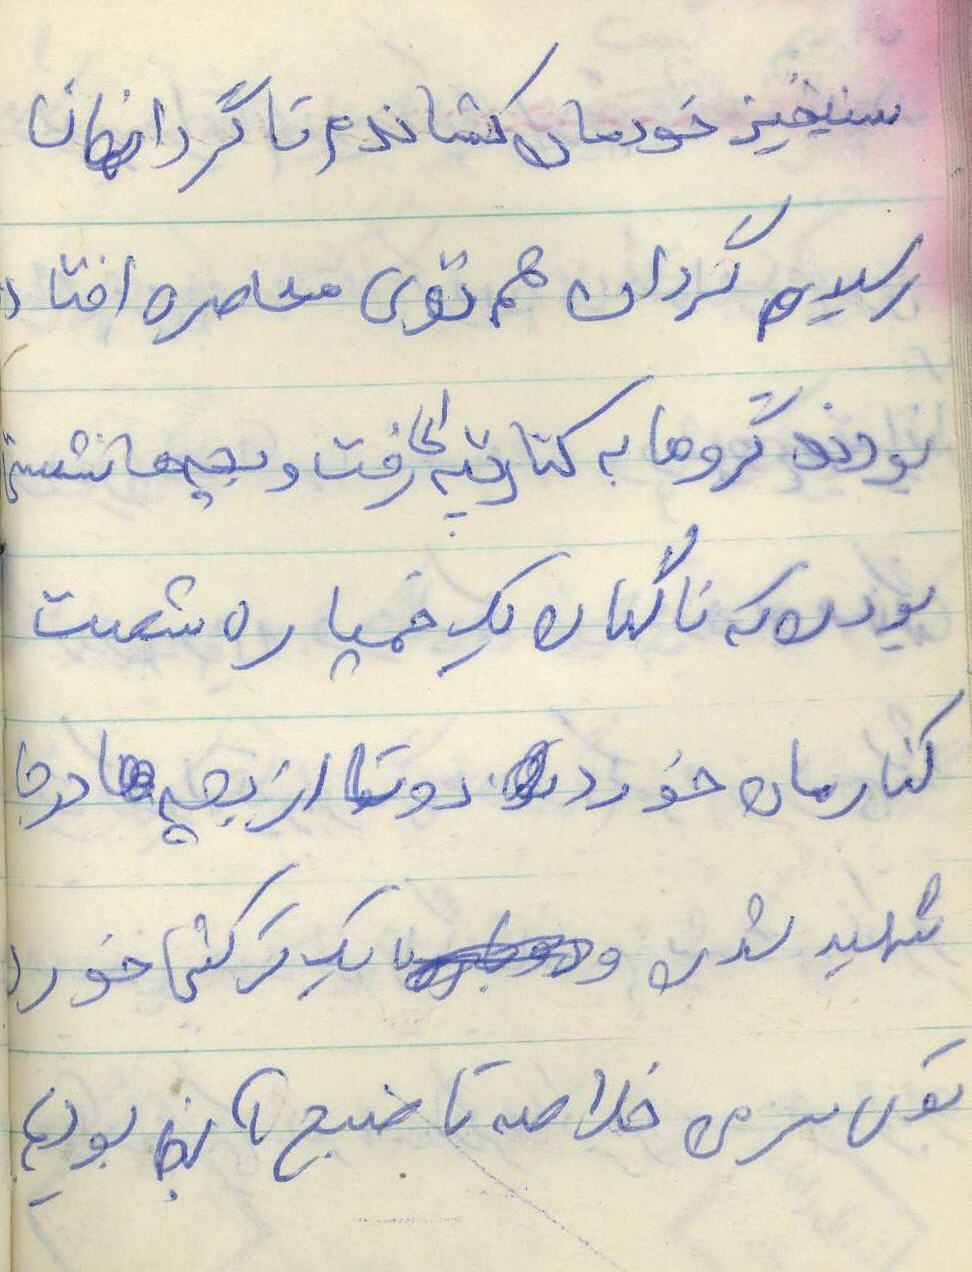 سنیخیز خودمان کشاندم تا گردانمان
رسیدیم گردان هم توی محاصره افتاد
بودند گروها به کنار تپه گرفت و بچه ها نشسته
بودن که ناگهان یک خمپاره شصت
کنارمان خورد دوتا از بچه ها درجا
شهید شدن و یک ترکش خورد
توی سر من خلاصه تا صبح آنجا بودیم